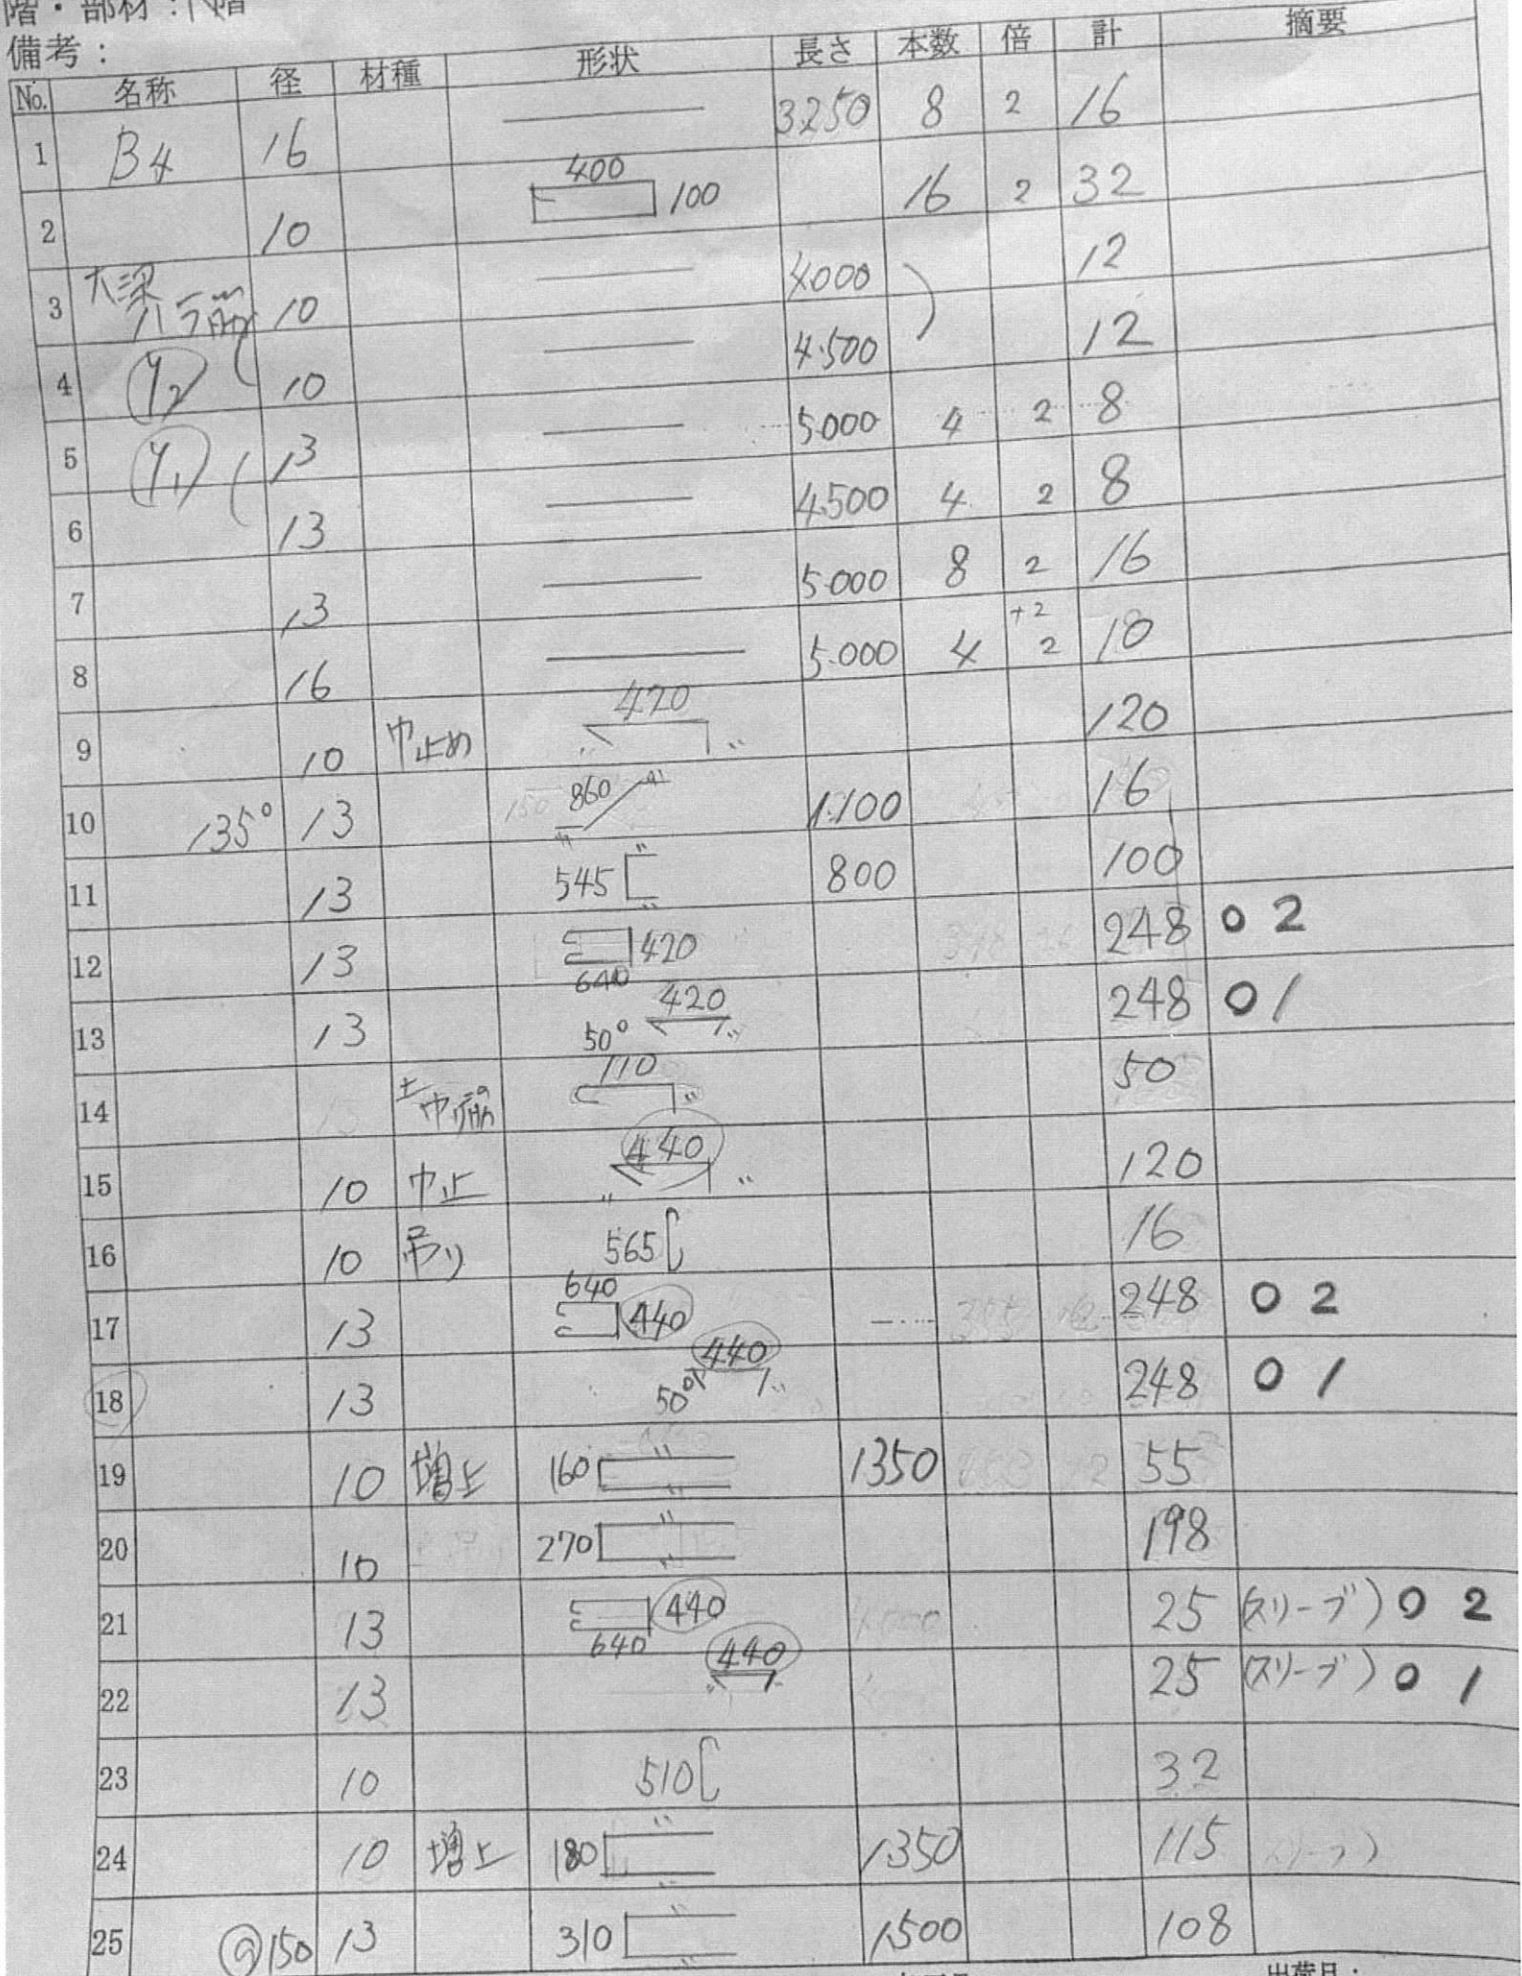 階・部材:
備考:
No. 名称 径 材種 形状 長さ 本数 倍 計 摘要
1 B4 16 3250 8 2 16
2 10 400 100 16 2 32
3 大梁 ハラ筋 10 4.000 12
4 (Y2) 10 4.500 12
5 (Y1) 13 5.000 4 2 8
6 13 4.500 4 2 8
7 13 5.000 8 2 16
8 16 5.000 4 +2 2 10
9 10 巾止め 420 〃 〃 120
10 135° 13 150 860 〃 〃 1.100 16
11 13 545 〃 〃 800 100
12 13 420 640 248 0 2
13 13 50° 420 〃 248 0 1
14 巾筋 110 〃 50
15 10 巾止 440 〃 〃 120
16 10 吊り 565 16
17 13 640 440 248 0 2
18 13 50° 440 〃 248 0 1
19 10 増上 160 〃 〃 1350 55
20 10 270 〃 〃 198
21 13 440 640 25 (スリーブ) 0 2
22 13 440 25 (スリーブ) 0 1
23 10 510 32
24 10 増上 180 〃 〃 1.350 115
25 @150 13 310 〃 〃 1.500 108
出荷日: